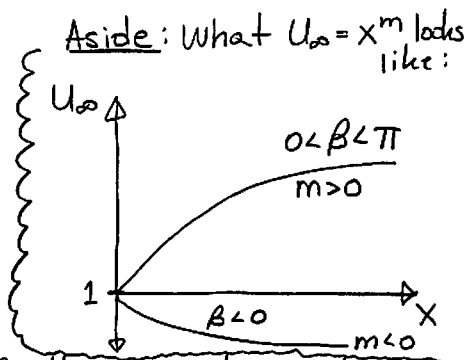 Aside: What U∞ = x^m looks
like:
U∞
0<β<π
m>0
1
x
β<0
m<0